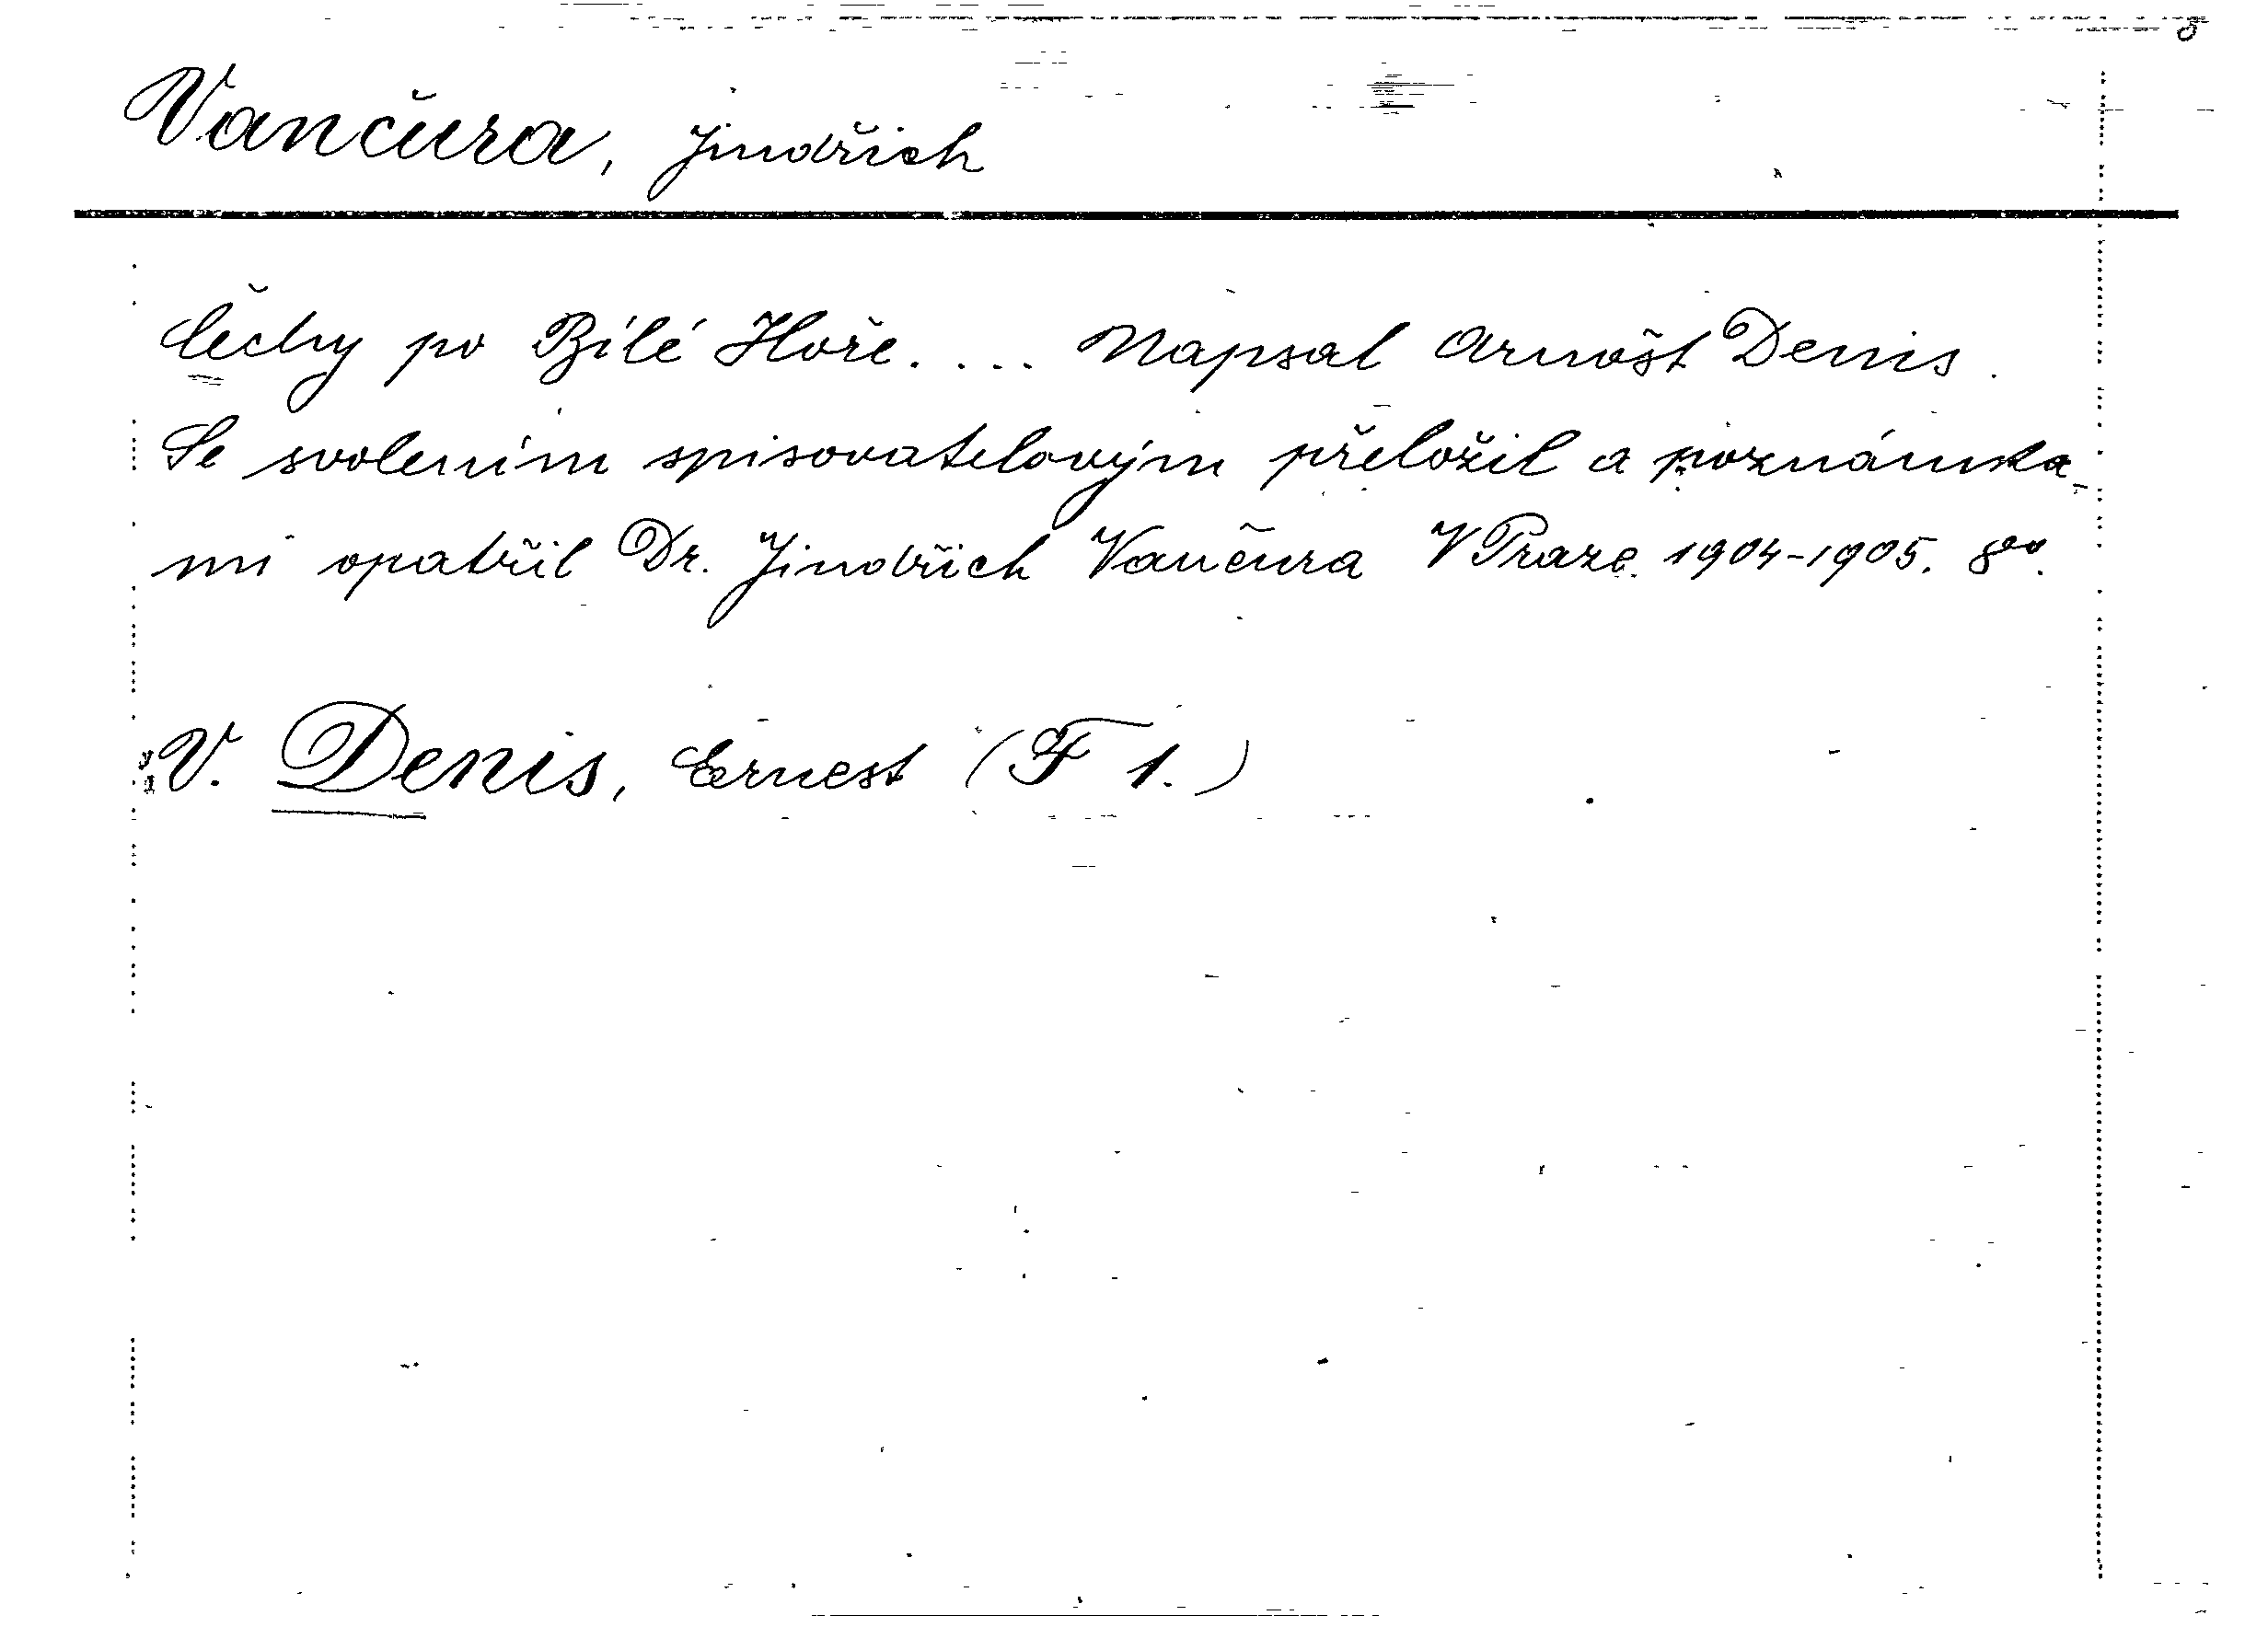 Vančura, Jindřich
Čechy po Bílé Hoře.... Napsal Arnošt Denis.
Se svolením spisovatelovým přeložil a poznámka-
mi opatřil Dr. Jindřich Vančura V Praze. 1904-1905. 8vo.
V. Denis, Ernest (F 1.)